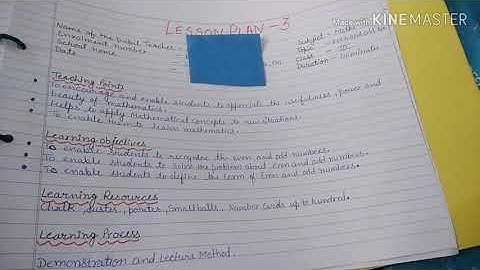 Made with KINEMASTER
LESSON PLAN - 3
Name of the Pupil Teacher - Subject - Maths
Enrollment number Topic - Even and odd no.
School name Class -
Date Duration -
Teaching Points
To encourage and enable students to appreciate the usefulness, power and
beauty of mathematics.
Helps to apply Mathematical concepts to
To enable mathematics.
Learning objectives
To enable students to recognise the even and odd numbers.
To enable students to solve the problem about even and odd numbers.
To enable students to define the term of Even and odd numbers.
Learning Resources
Chalk, duster, pointer, Small balls, Number cards up to hundred.
Learning Process
Demonstration and Lecture Method.